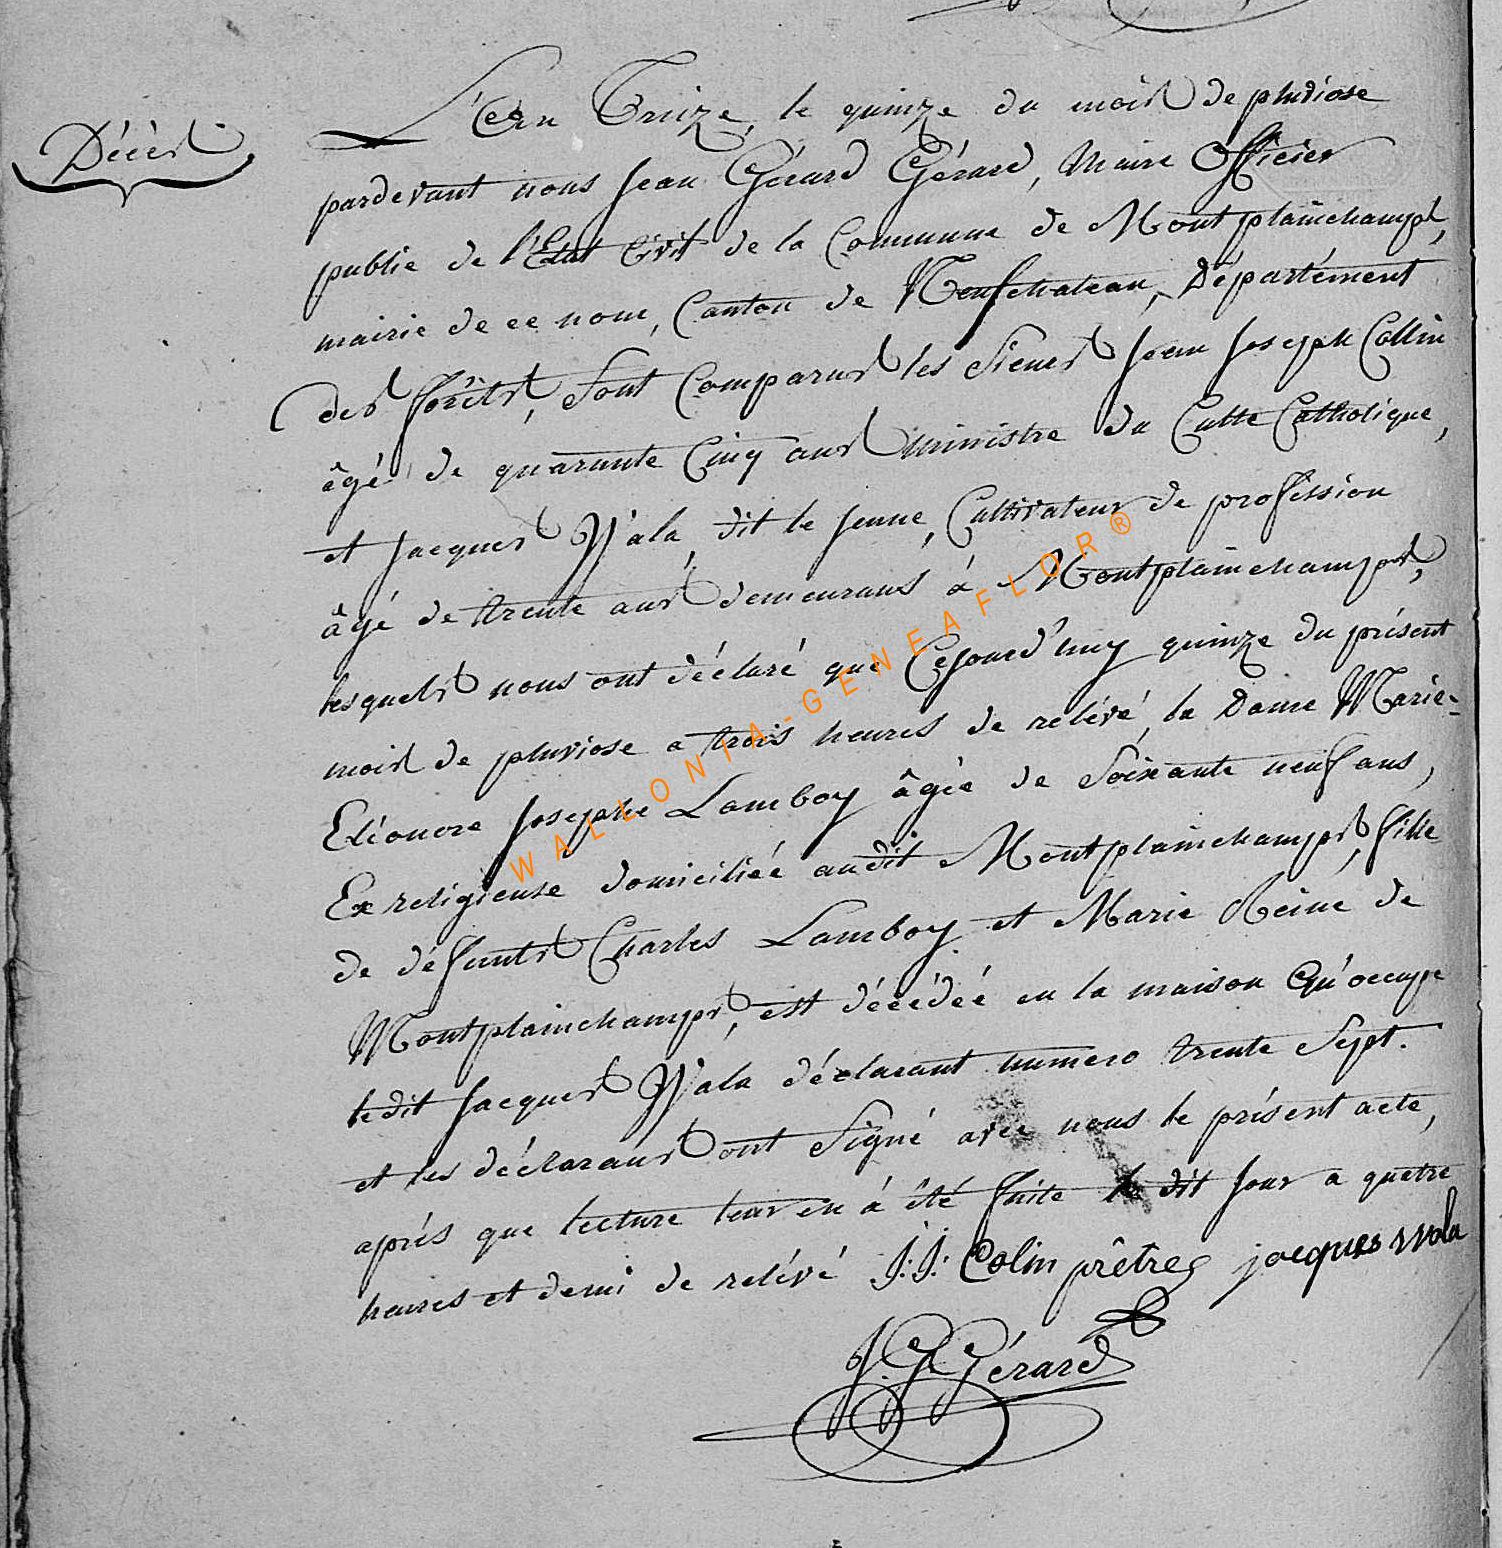 Décès
L'an Treize, le quinze du mois de pluviose
pardevant nous Jean Gérard Gérard, Maire Officier
public de l'Etat Civil de la Commune de Montplainchamps,
mairie de ce nom, Canton de Neufchateau, Département
des forêts, Sont Comparus les Sieurs Jean Joseph Collin
âgé de quarante Cinq ans Ministre du Culte Catholique,
et Jacques Wala dit le Jeune, Cultivateur de profession
âgé de trente ans demeurans à Montplainchamps,
lesquels nous ont déclaré que Cejourd'huy quinze du présent
mois de pluviose a trois heures de relévé, la Dame Marie-
Eléonore Josephe Lamboy âgée de Soixante neuf ans,
Ex religieuse domiciliée audit Montplainchamps, fille
de défunts Charles Lamboy et Marie Reine de
Montplainchamps, est décédée en la maison qu'occupe
ledit Jacques Wala déclarant numero trente Sept.
et les déclarans ont Signé avec nous le présent acte,
aprés que lecture leur en à été faite le dit Jour a quatre
heures et demi de relévé J: J: Colin prêtre jacques wala
J. G. Gérard
WALLONIA-GENEAFLOR®